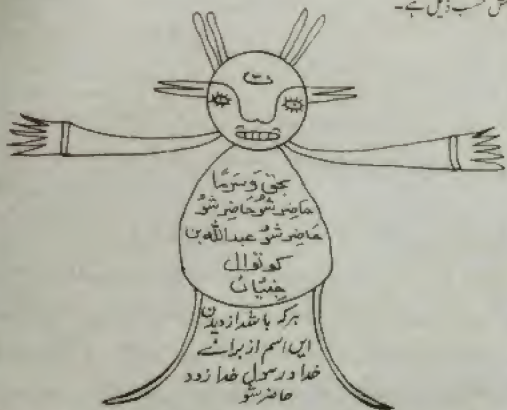 نقش حسب ذیل ہے۔
بحق و سرما
حاضر شو حاضر شو
حاضر شو عبدالله بن
کوتوال
جنیان
ہرکہ باشد از دیدن
ایں اسم از برائے
خدا و رسول خدا زود
حاضر شو